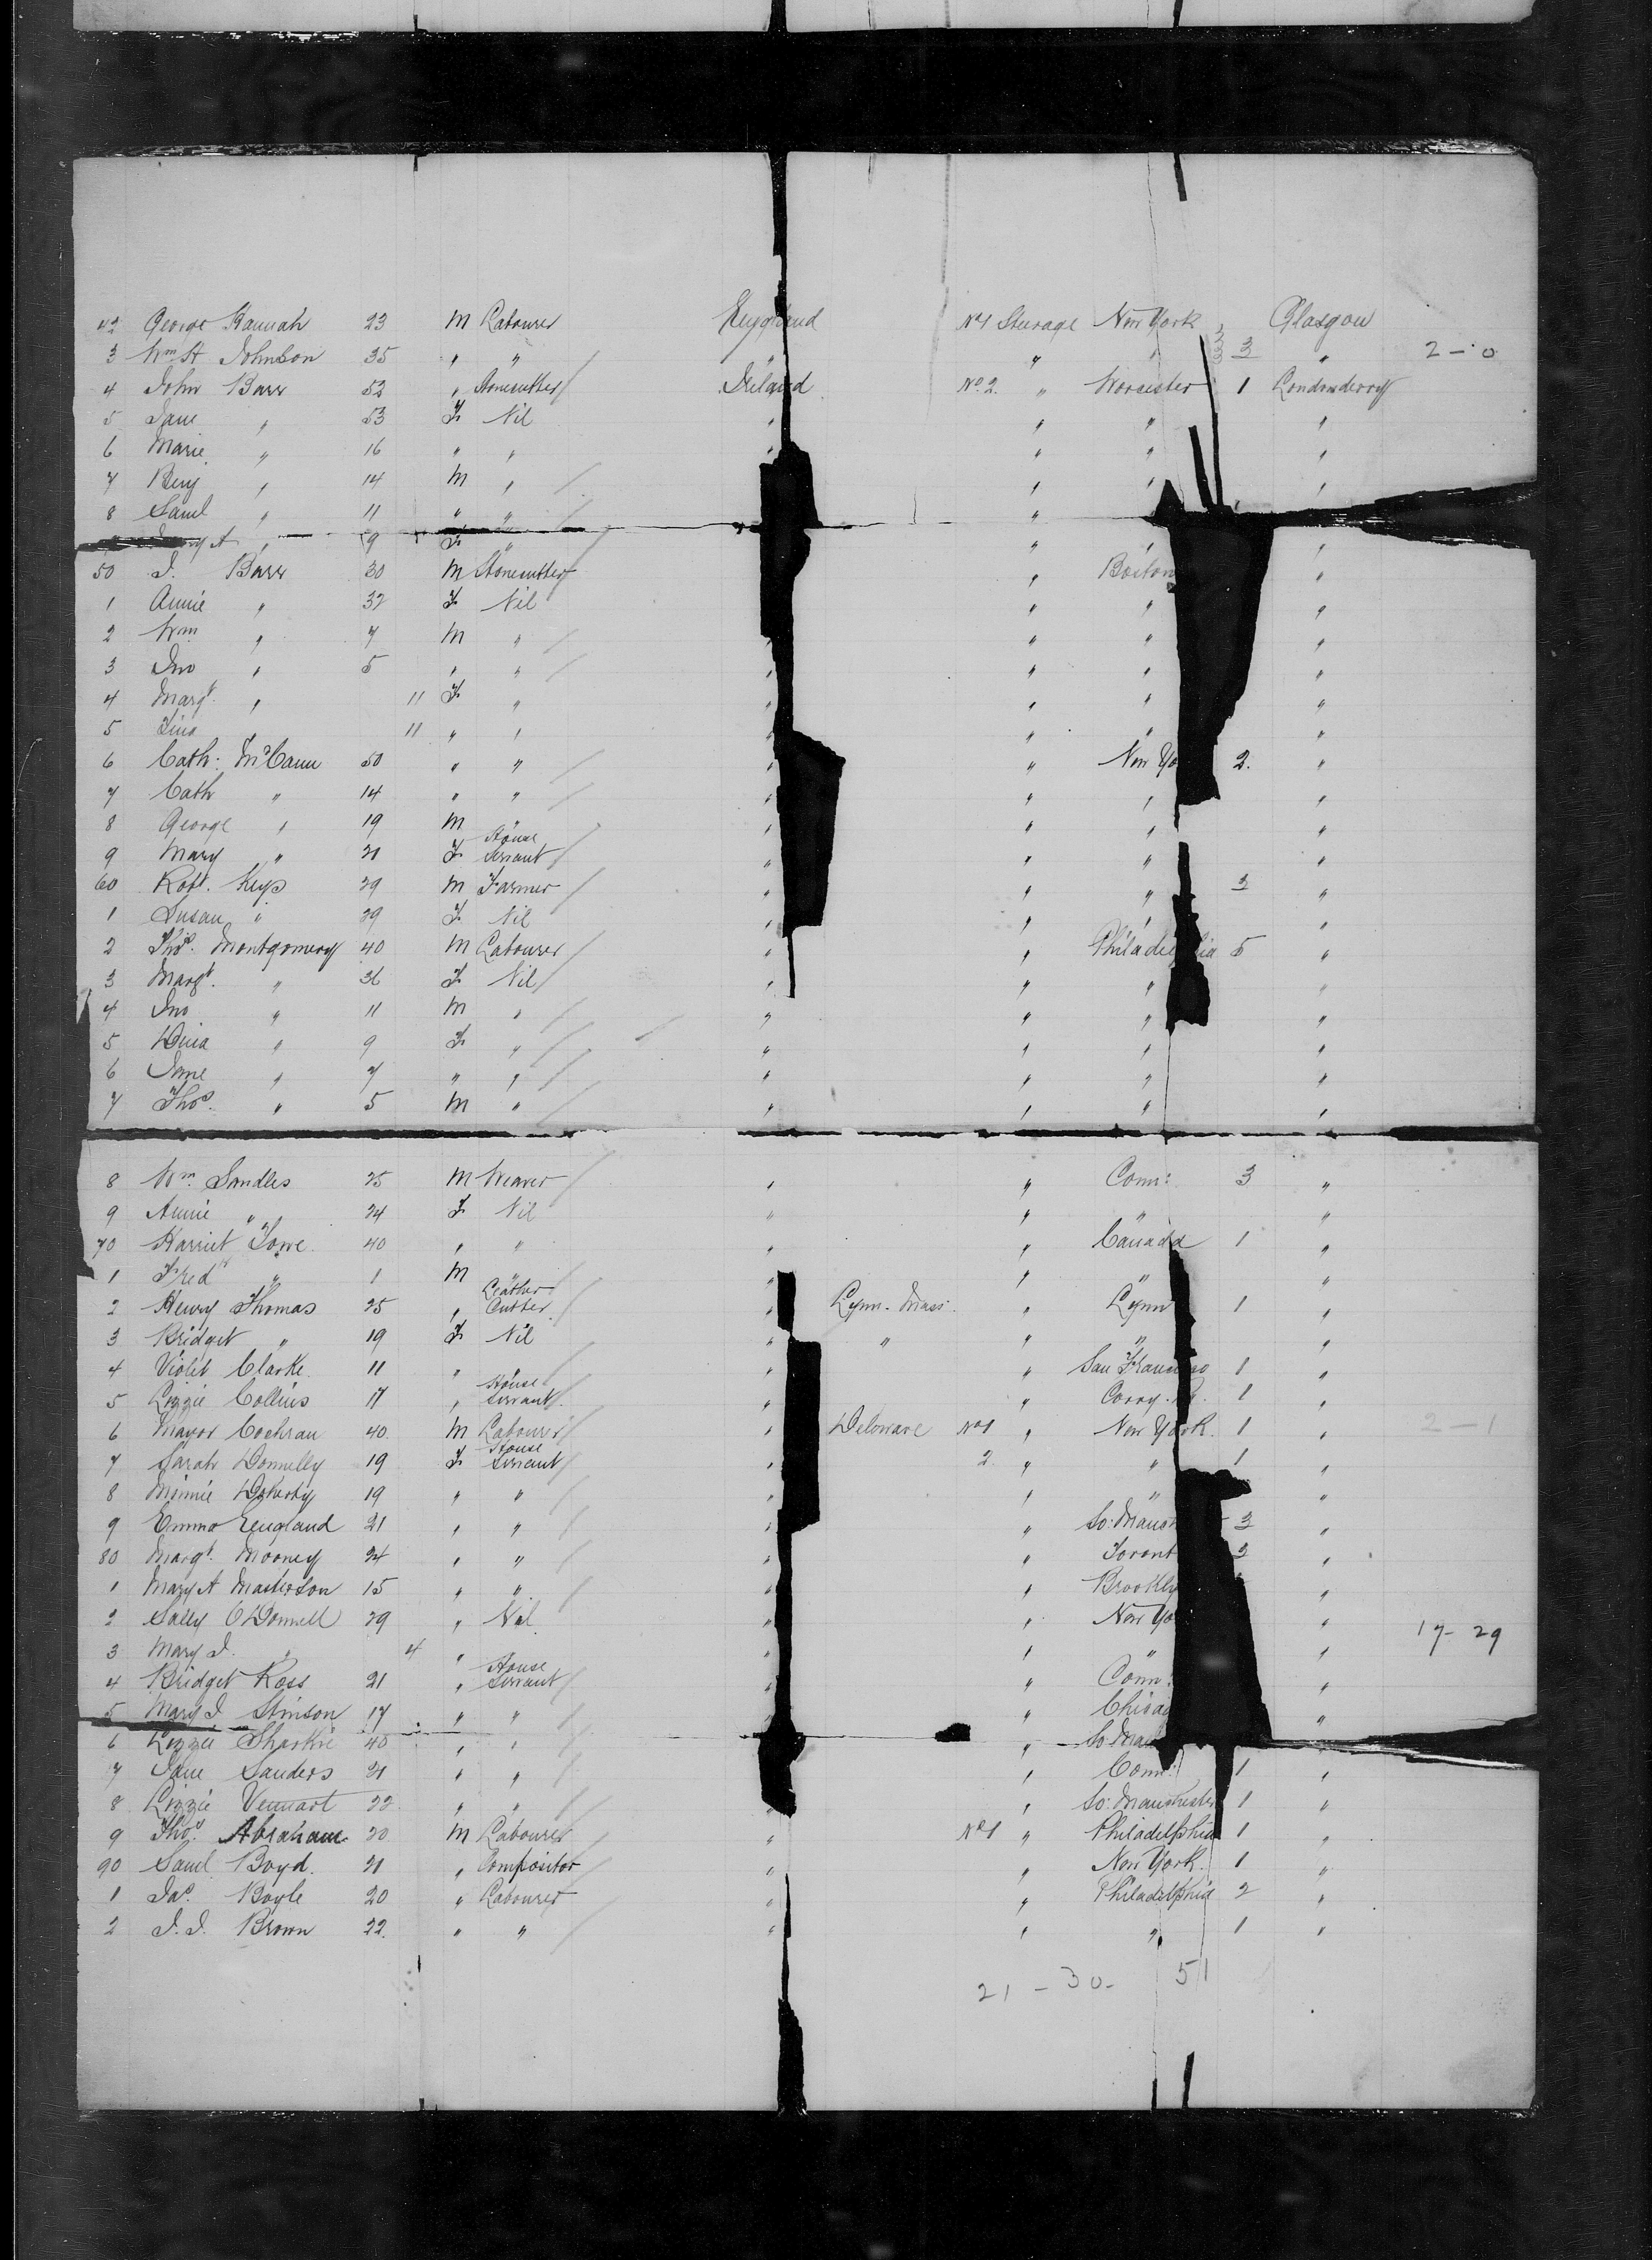 42 George Hannah 23 M Labourer England No 1 Steerage New York 3 Glasgow
3 Wm H Johnson 35 " " " " " 3 " 2 - 0
4 John Barr 52 " Stonecutter Ireland No 2. " Worcester 1 Londonderry
5 Jane " 53 F Nil " " " "
6 Marie " 16 " " " " " "
7 Benj " 14 M " " " "
8 Saml " 11 " " "
A " 9 F " " " "
50 J. Barr 30 M Stonecutter " Boston "
1 Annie " 32 F Nil " " "
2 Wm " 7 M " " " " "
3 Jno " 5 " " " " " "
4 Margt " 11 F " " " " "
5 Lina " 11 " " " " " "
6 Cath: McCann 50 " " " " New Yo 2. "
7 Cath " 14 " " " " " "
8 George " 19 M " " " " "
9 Mary " 21 F House Servant " " " "
60 Robt. Keys 29 M Farmer " " " 3 "
1 Susan " 29 F Nil " " " "
2 Thos. Montgomery 40 M Labourer " " Philadel ia 5 "
3 Margt. " 36 F Nil " " " "
4 Jno " 11 M " " " " "
5 Dina " 9 F " " " " "
6 Jane " 7 " " " " " "
7 Thos. " 5 M " " " " "
8 Wm. Sandles 25 M Weaver " " Conn: 3 "
9 Annie " 24 F Nil " " " "
70 Harriet Lowe 40 " " " " Canada 1 "
1 Fredk " 1 M " " " " "
2 Henry Thomas 25 " Leather Cutter " Lynn. Mass. " Lynn 1 "
3 Bridget " 19 F Nil " " " " "
4 Violet Clarke 11 " " " " San Fran o 1 "
5 Lizzie Collins 17 " House Servant " " Corry. 1 "
6 Mayor Cochran 40 M Labourer " Delaware No 1 " New York. 1 " 2 - 1
7 Sarah Donnelly 19 F House Servant " 2 " " 1 "
8 Minnie Doherty 19 " " " " " "
9 Emma England 21 " " " " So: Manch 3 "
80 Margt. Mooney 24 " " " " Toront 2 "
1 Mary A Masterson 15 " " " " Brookly "
2 Sally O'Donnell 29 " Nil " " New Yo "
3 Mary J. " 4 " " " " " 17 - 29
4 Bridget Ross 21 " House Servant " " Conn: "
5 Mary J Stinson 17 " " " " Chica "
6 Lizzie Sharkie 40 " " " So: Man "
7 Jane Sanders 21 " " " Conn: 1 "
8 Lizzie Vennart 22 " " " " So: Manchester 1 "
9 Thos. Abraham 20 M Labourer " No 1 " Philadelphia 1 "
90 Saml Boyd. 21 " Compositor " " New York. 1 "
1 Jas. Boyle 20 " Labourer " " Philadelphia 2 "
2 J. J. Brown 22. " " " " " 1 "
21 - 30 - 51